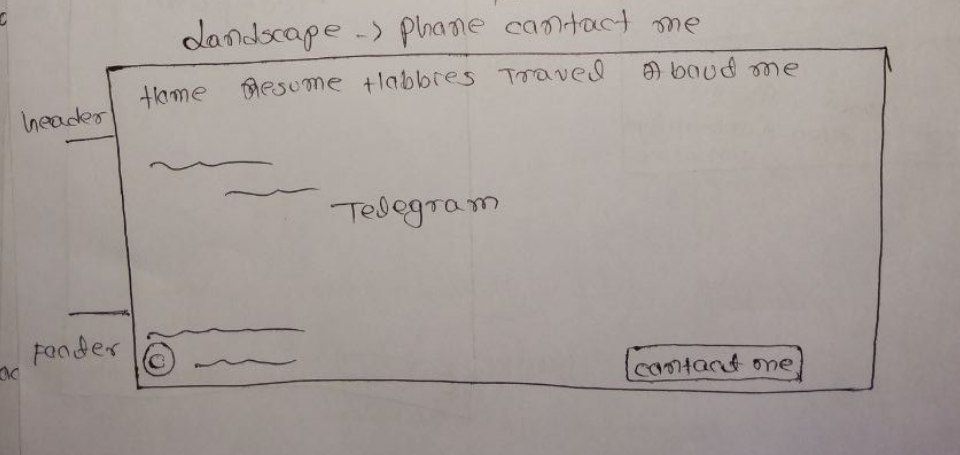 Landscape -> Phone contact me
Home Resume Hobbies Traved Aboud me
header
Telegram
Fooder
© contact me